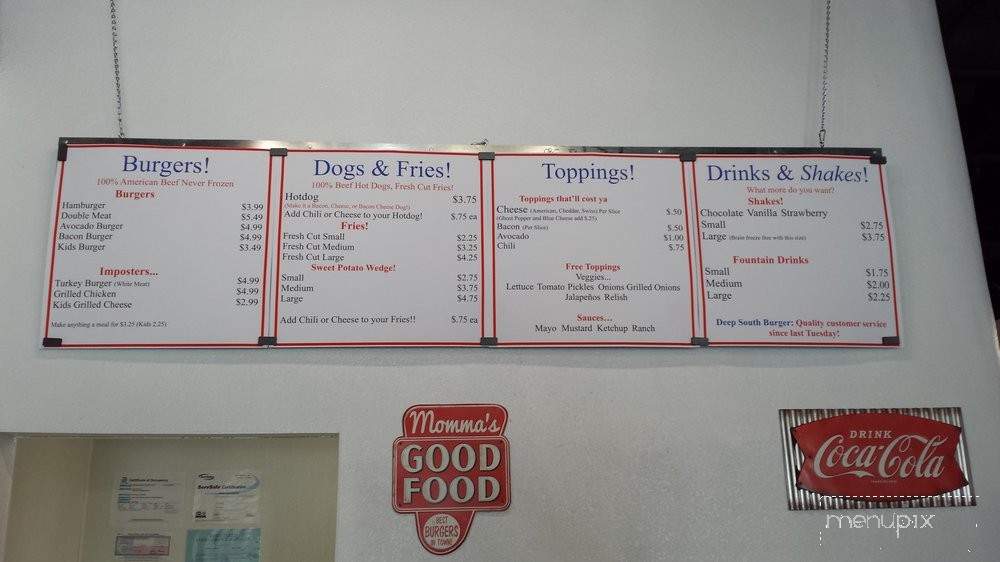 Burgers!
100% American Beef Never Frozen
Burgers
Hamburger $3.99
Double Meat $5.49
Avocado Burger $4.99
Bacon Burger $4.99
Kids Burger $3.49
Imposters...
Turkey Burger (White Meat) $4.99
Grilled Chicken $4.99
Kids Grilled Cheese $2.99
Make anything a meal for $3.25 (Kids 2.25)
Dogs & Fries!
100% Beef Hot Dogs, Fresh Cut Fries!
Hotdog $3.75
(Make it a Bacon, Cheese, or Bacon Cheese Dog!)
Add Chili or Cheese to your Hotdog! $.75 ea
Fries!
Fresh Cut Small $2.25
Fresh Cut Medium $3.25
Fresh Cut Large $4.25
Sweet Potato Wedge!
Small $2.75
Medium $3.75
Large $4.75
Add Chili or Cheese to your Fries!! $.75 ea
Toppings!
Toppings that'll cost ya
Cheese (American, Cheddar, Swiss) Per Slice $.50
(Ghost Pepper and Blue Cheese add $.25)
Bacon (Per Slice) $.50
Avocado $1.00
Chili $.75
Free Toppings
Veggies...
Lettuce Tomato Pickles Onions Grilled Onions
Jalapeños Relish
Sauces...
Mayo Mustard Ketchup Ranch
Drinks & Shakes!
What more do you want?
Shakes!
Chocolate Vanilla Strawberry
Small $2.75
Large (Brain freeze free with this size) $3.75
Fountain Drinks
Small $1.75
Medium $2.00
Large $2.25
Deep South Burger: Quality customer service
since last Tuesday!
Momma's
GOOD
FOOD
BEST
BURGERS
IN TOWN!
DRINK
Coca-Cola
Certificate of Occupancy
ServSafe Certification
menupix